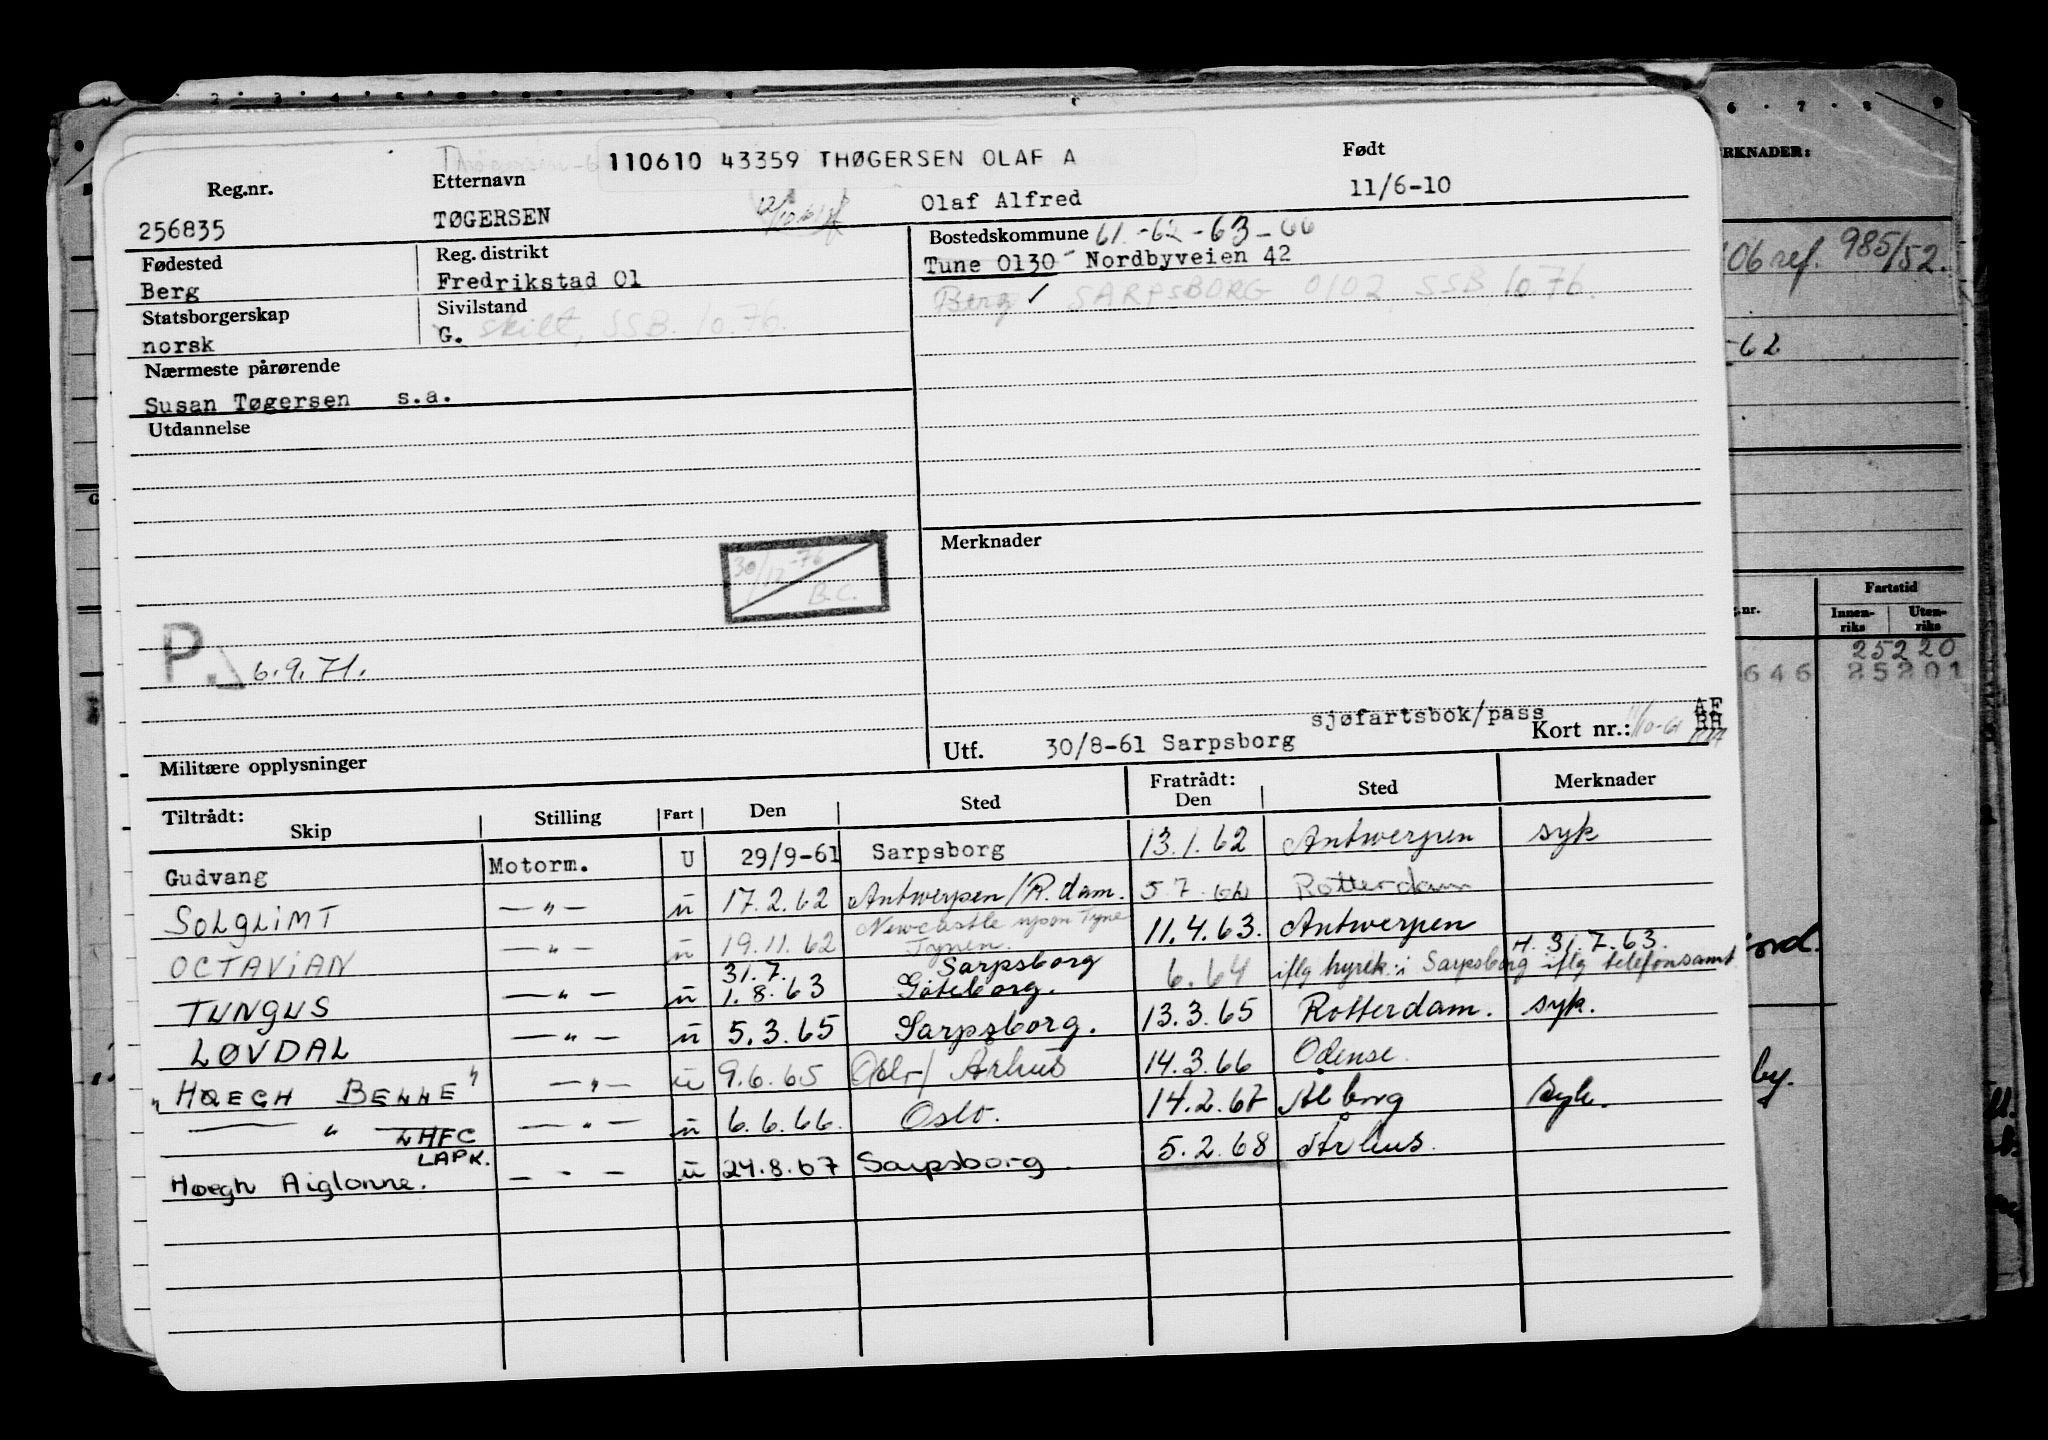 110610 43359 THØGERSEN OLAF A
Reg.nr. Etternavn Født
256835 TØGERSEN Olaf Alfred 11/6-10
Fødested Reg. distrikt Bostedskommune 61-62-63-66
Berg Fredrikstad 01 Tune 0130 - Nordbyveien 42
Statsborgerskap Sivilstand Berg ✓ SARPSBORG 0102 SSB 10.76.
norsk G. skilt, SSB. 10.76.
Nærmeste pårørende
Susan Tøgersen s.a.
Utdannelse
Merknader
30/12-76
B.C.
P. 6.9.71.
sjøfartsbok/pass
Utf. 30/8-61 Sarpsborg Kort nr.:
Militære opplysninger
Tiltrådt: Fratrådt:
Skip Stilling Fart Den Sted Den Sted Merknader
Gudvang Motorm. U 29/9-61 Sarpsborg 13.1.62 Antwerpen syk
SOLGLIMT — " — u 17.2.62 Antwerpen/R.dam. 5.7.62 Rotterdam
Newcastle upon Tyne
OCTAVIAN — " — u 19.11.62 Tynen. 11.4.63. Antwerpen
31.7. Sarpsborg H. 31.7.63.
TUNGUS — " — u 1.8.63 Göteborg. 6.64 iflg hyrek. i Sarpsborg iflg telefonsamt
LØVDAL — " — u 5.3.65 Sarpsborg. 13.3.65 Rotterdam. syk.
"HOEGH BELLE" — " — u 9.6.65 Oslo/ Århus 14.3.66 Odense.
— " — LHFC — " — u 6.6.66. Oslo. 14.2.67 Ålborg syk.
LAPK.
Hoegh Aiglonne. — - — u 24.8.67 Sarpsborg. 5.2.68 Århus.
RKNADER:
06 ref. 985/52.
-62
Fartstid
Innen-
riks
Uten-
riks
25220
646 25201